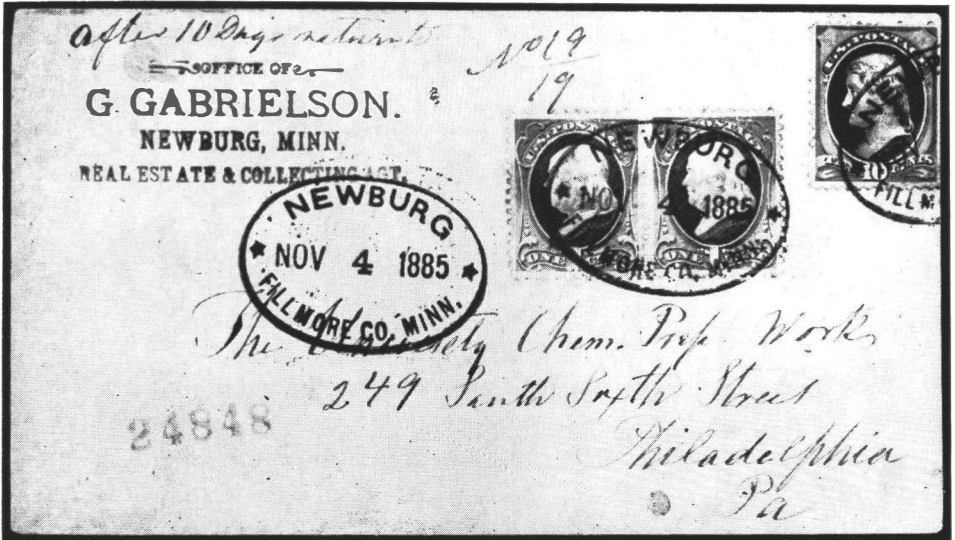 after 10 Days return to
OFFICE OF
G. GABRIELSON.
NEWBURG, MINN.
REAL ESTATE & COLLECTING AGT.
No 19
19
NEWBURG
NOV 4 1885
FILLMORE CO. MINN.
NEWBURG
NO 4 1885
MORE CO. MINN.
FILLM
The Chem. Prep. Work
249 South Sixth Street
Philadelphia
Pa
24848